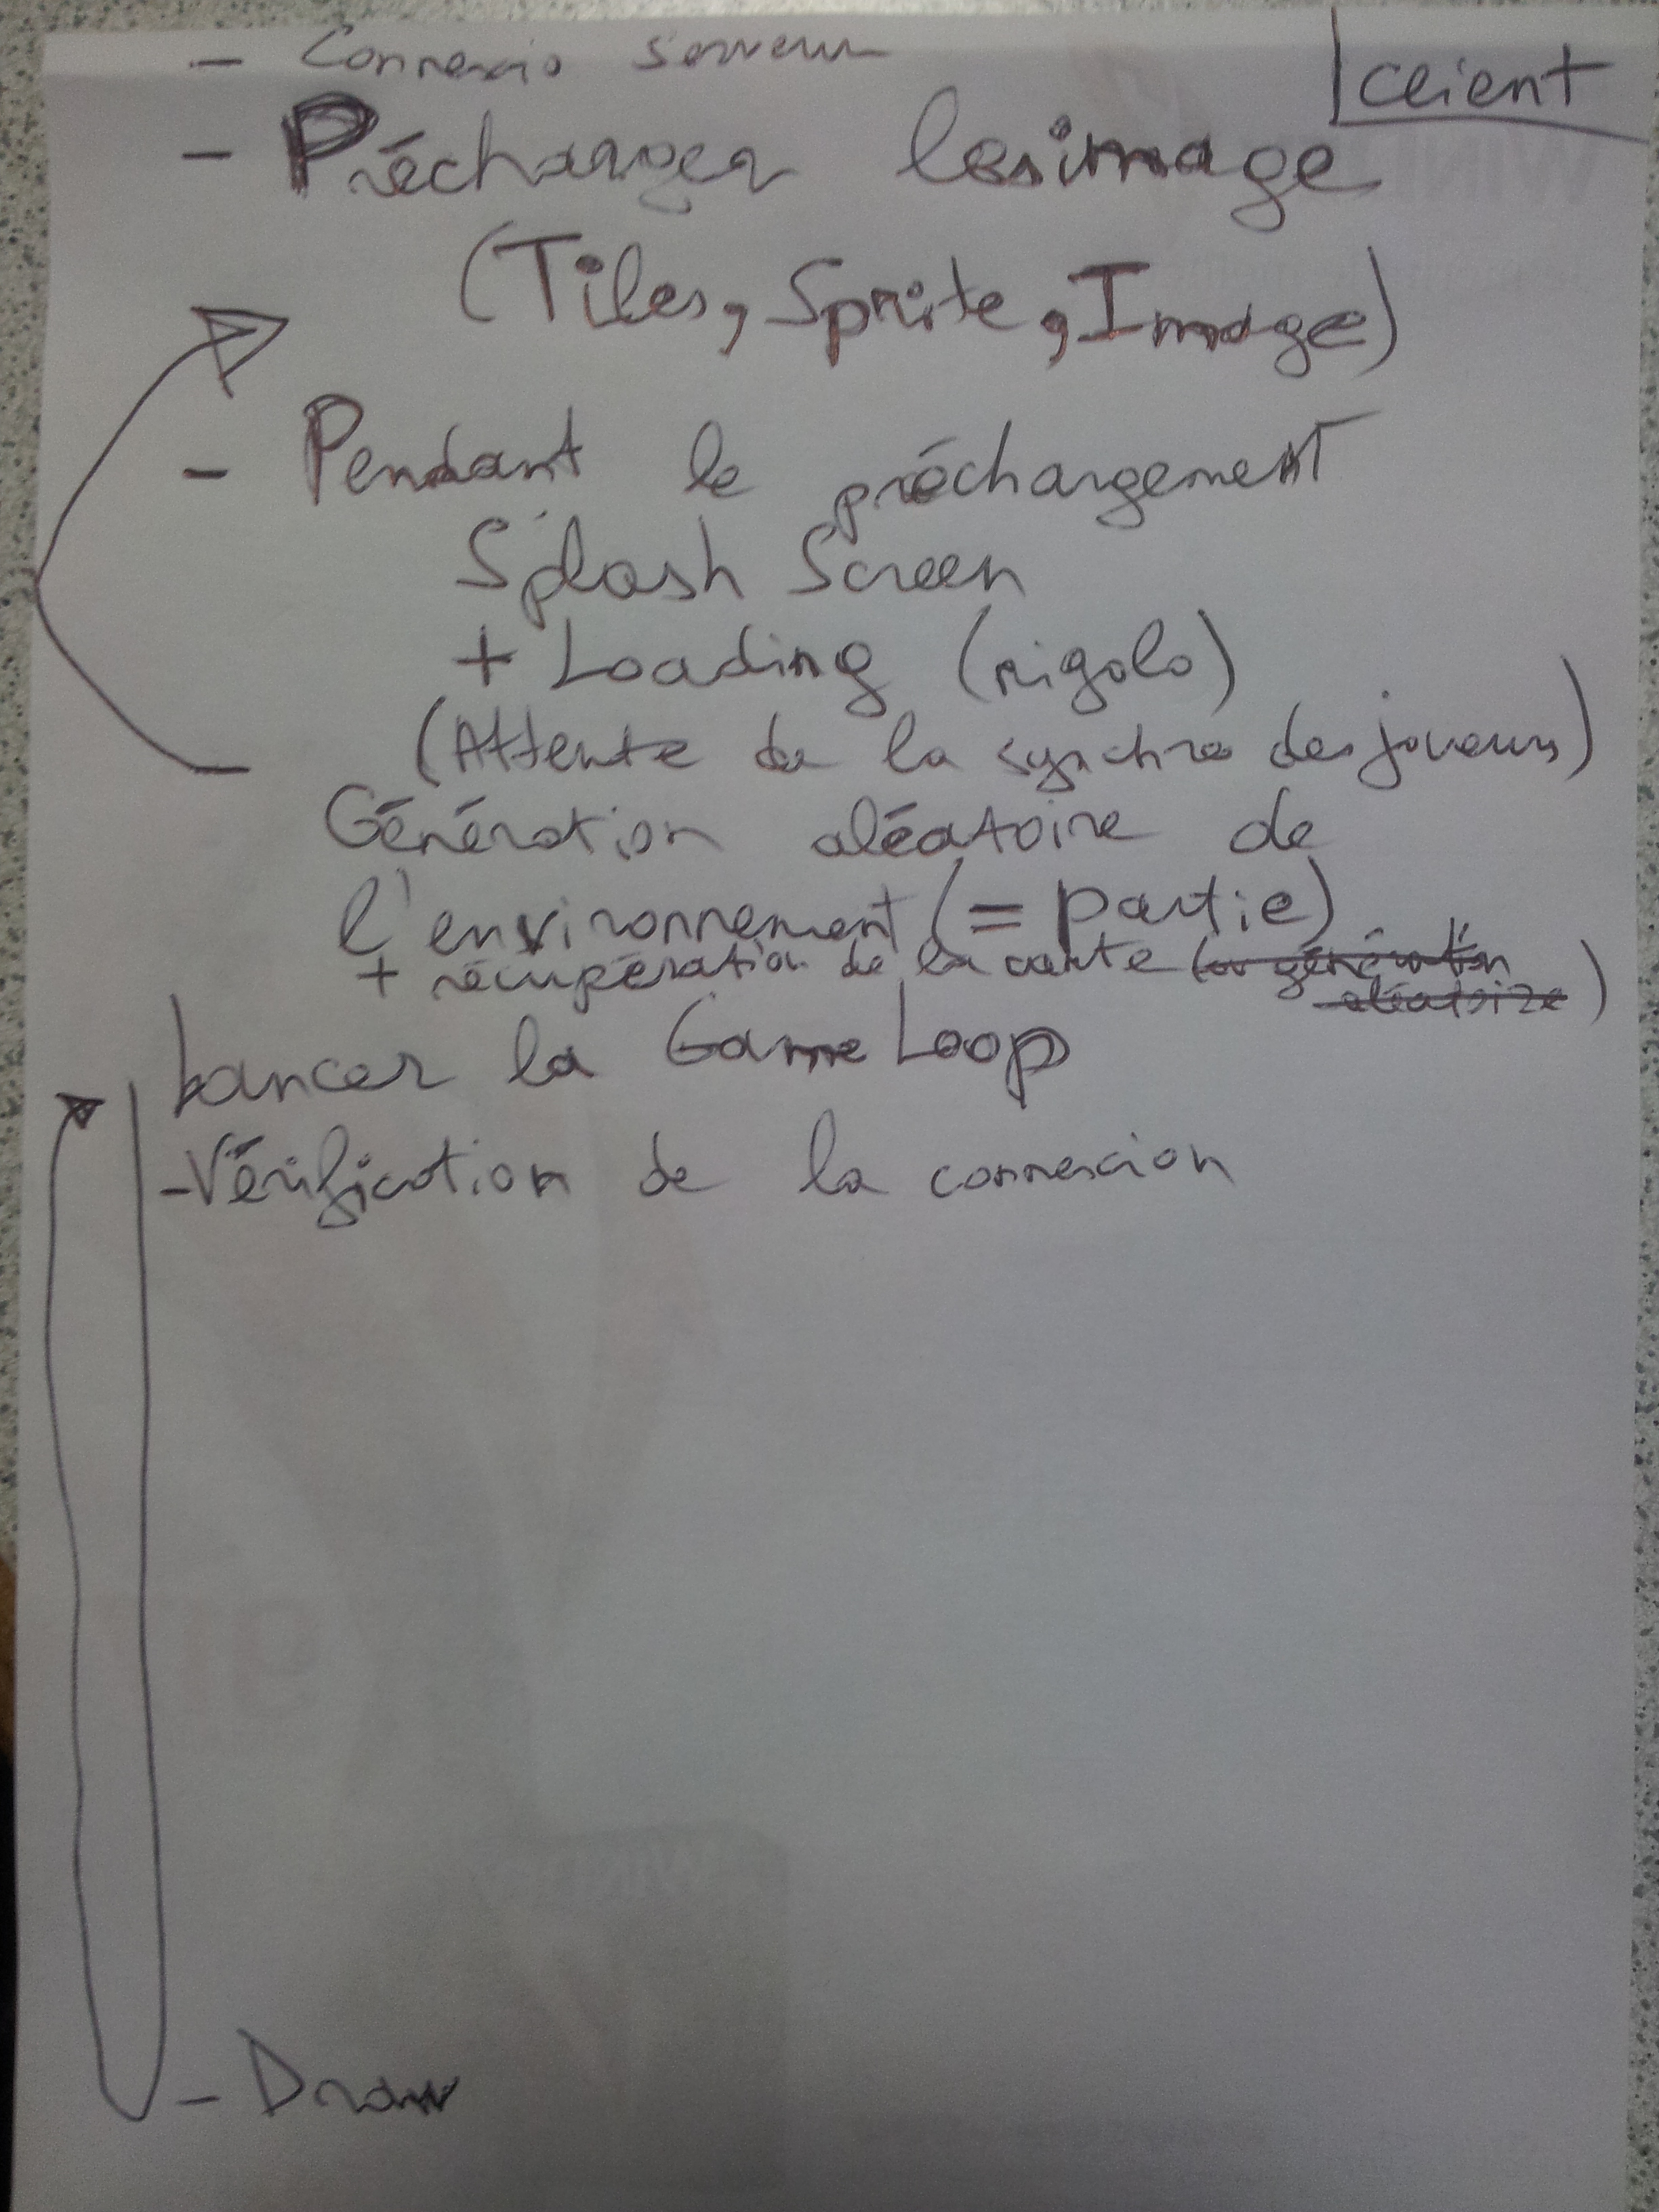 - Connexio serveur
client
- Précharger les image
(Tiles, Sprite, Image)
- Pendant le préchargement
Splash Screen
+ Loading (rigolo)
(Attente de la synchro des joueurs)
Génération aléatoire de
l'environnement (= partie)
+ récupération de la carte (ou génération
aléatoire)
Lancer la Game Loop
- Vérification de la connexion
- Draw